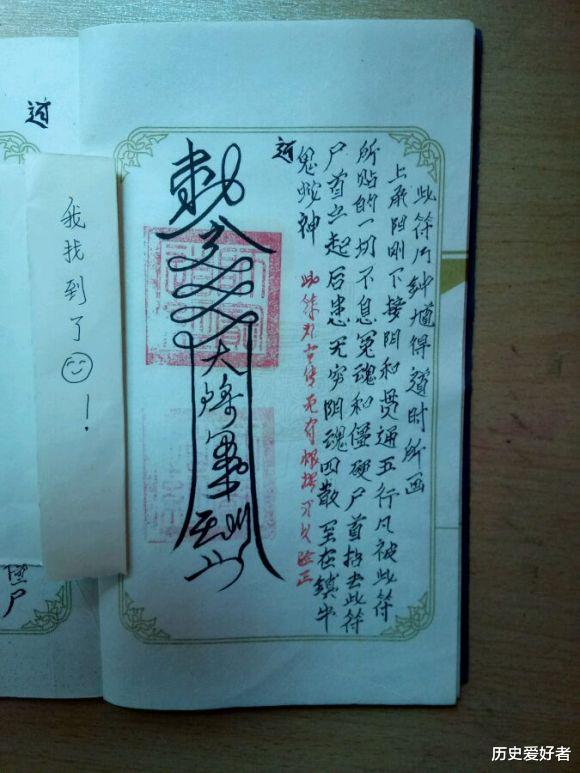 此符乃钟馗得道时所画
上承阳刚下接阴和贯通五行凡被此符
所贴的一切不息冤魂和僵硬尸首拈去此符
尸首立起后患无穷阴魂四散 至在镇牛
鬼蛇神
此符 古传无有根据
敕令
大将军
我找到了!
尸
历史爱好者